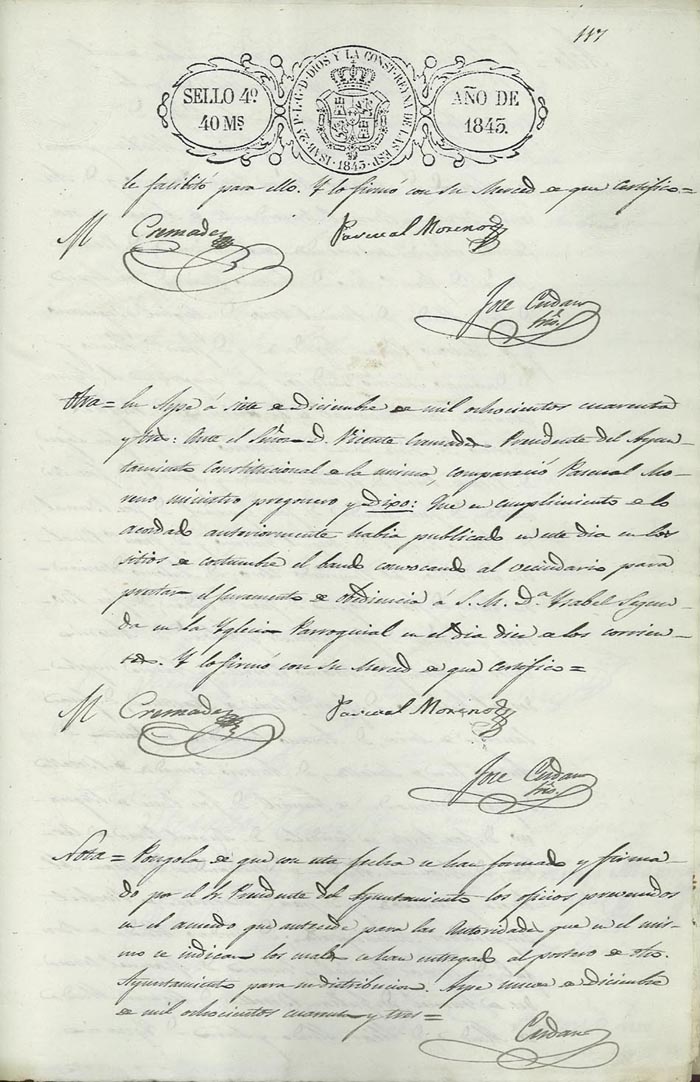 117
SELLO 4º.
40 Ms
ISAB. 2ª. P. L. G. D. DIOS Y LA CONST. REYNA DE LAS ESP.
1843.
AÑO DE
1843.
le facilitó para ello. Y lo firmó con su Merced de que certifico=
M Cremades
Pascual Moreno
Jose Cerdan
Srio.
Otra= En Aspe á siete de Diciembre de mil ochocientos cuarenta
y tres: Ante el Señor D. Vicente Cremades Presidente del Ayun-
tamiento Constitucional de la misma, compareció Pascual Mo-
reno ministro pregonero y Dixo: Que en cumplimiento de lo
acordado anteriormente habia publicado en este dia en los
sitios de costumbre el bando convocando al vecindario para
prestar el juramento de obediencia á S. M. Dª. Ysabel Segun-
da en la Yglesia Parroquial en el dia diez de los corrien-
tes. Y lo firmó con su Merced de que certifico=
M Cremades
Pascual Moreno
Jose Cerdan
Srio.
Nota= Pongola de que con esta fecha se han formado y firma-
do por el Sr. Presidente del Ayuntamiento los oficios prevenidos
en el acuerdo que antecede para las Autoridades que en el mis-
mo se indican los cuales se han entregado al portero de dho.
Ayuntamiento para su distribucion. Aspe nueve de Diciembre
de mil ochocientos cuarenta y tres=
Cerdan